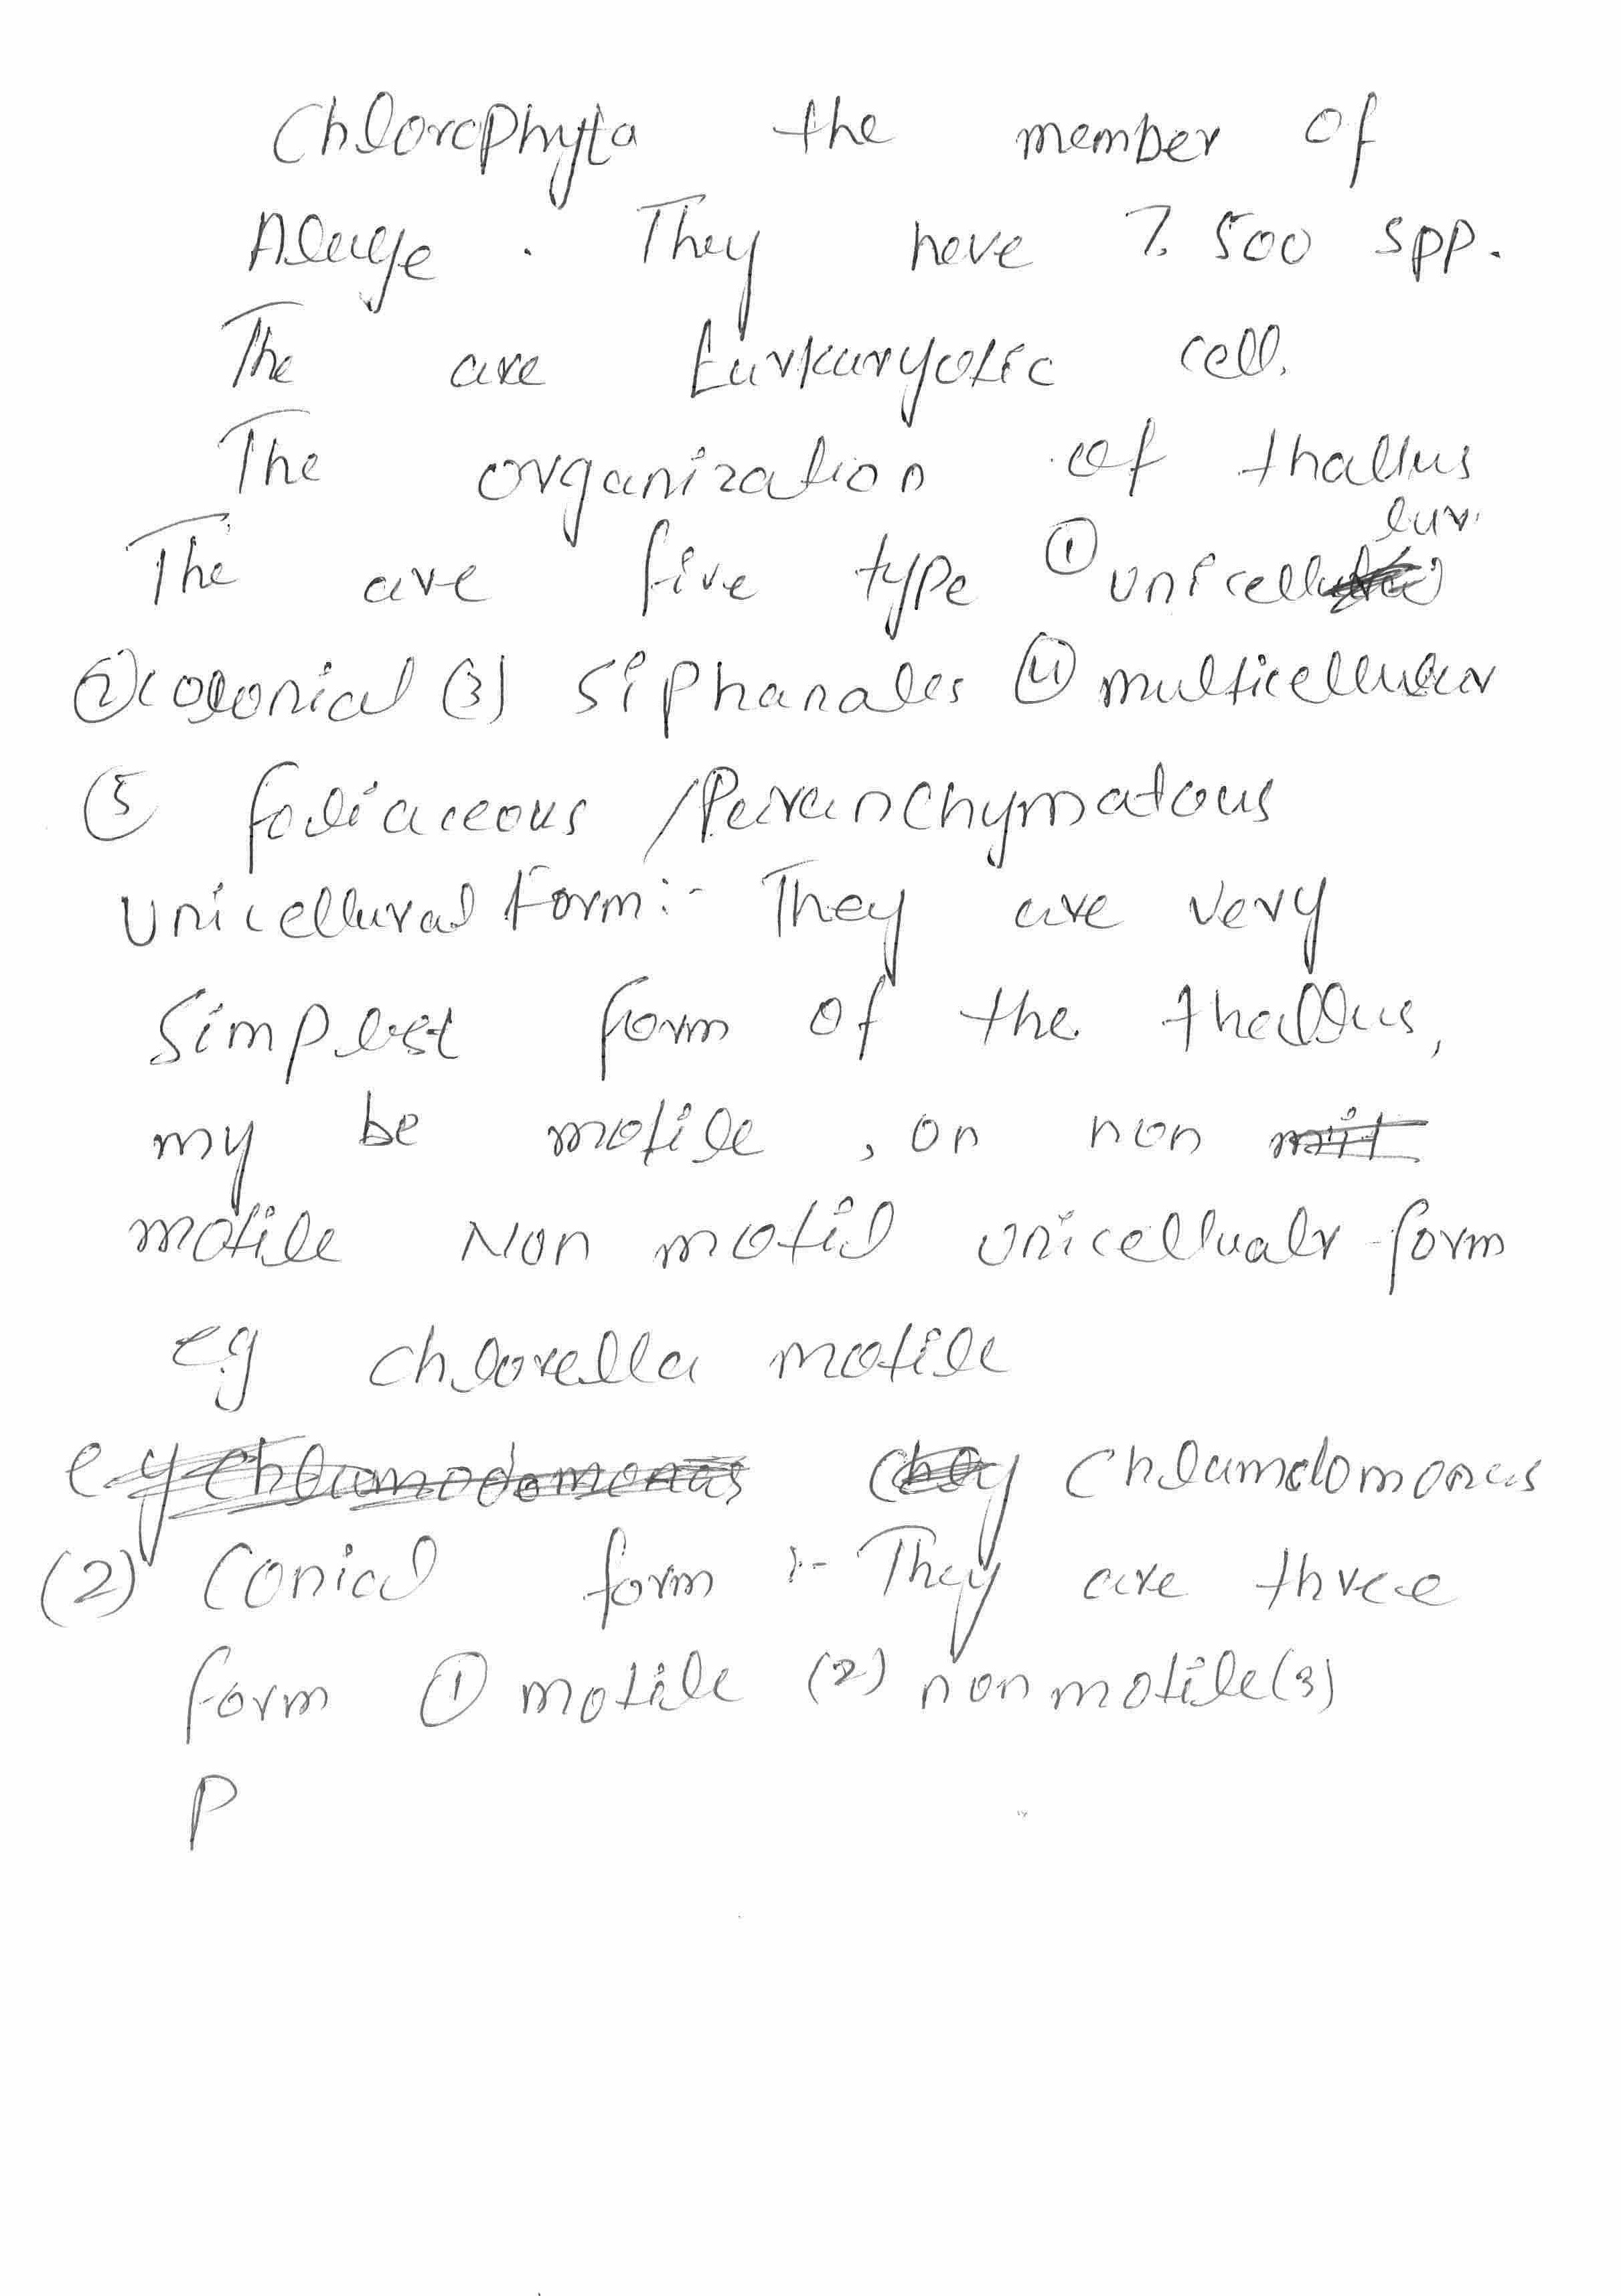 Chlorophyta the member of
Aleage . They have 7.500 spp.
The are Eurkurycotic cell.
The organization of thallus
The are five type ① unicellular
② colonial (3) Siphanales ④ multicellular
⑤ foliaceous /Paranchymatous
Unicellural form:- They are very
Simplest form of the thallus,
my be motile , on non
motile Non motil unicellualr form
e.g chlorella motile
e.g Chlamdomonas
(2) Conical form :- They are three
form ① motile (2) non motile (3)
P